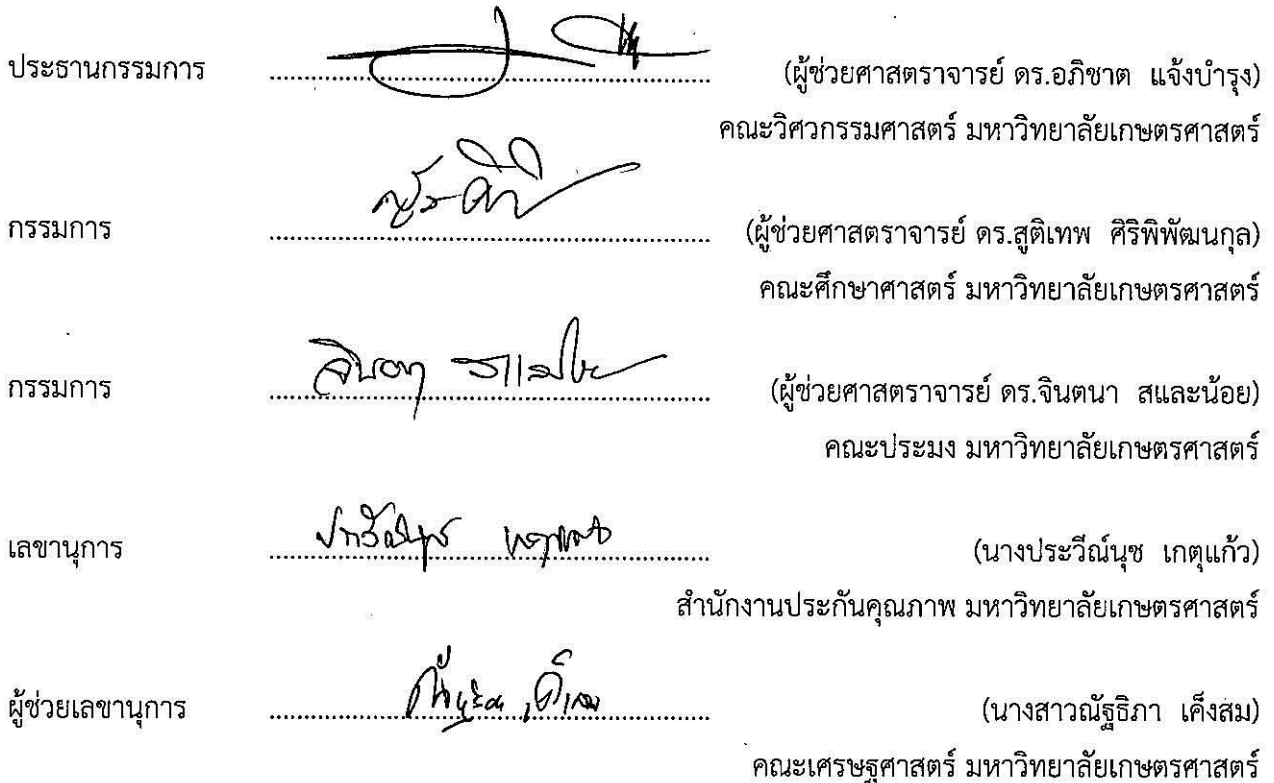 ประธานกรรมการ (ผู้ช่วยศาสตราจารย์ ดร.อภิชาต แจ้งบำรุง)
คณะวิศวกรรมศาสตร์ มหาวิทยาลัยเกษตรศาสตร์
กรรมการ (ผู้ช่วยศาสตราจารย์ ดร.สูติเทพ ศิริพิพัฒนกุล)
คณะศึกษาศาสตร์ มหาวิทยาลัยเกษตรศาสตร์
กรรมการ (ผู้ช่วยศาสตราจารย์ ดร.จินตนา สและน้อย)
คณะประมง มหาวิทยาลัยเกษตรศาสตร์
เลขานุการ (นางประวีณ์นุช เกตุแก้ว)
สำนักงานประกันคุณภาพ มหาวิทยาลัยเกษตรศาสตร์
ผู้ช่วยเลขานุการ (นางสาวณัฐธิภา เค็งสม)
คณะเศรษฐศาสตร์ มหาวิทยาลัยเกษตรศาสตร์